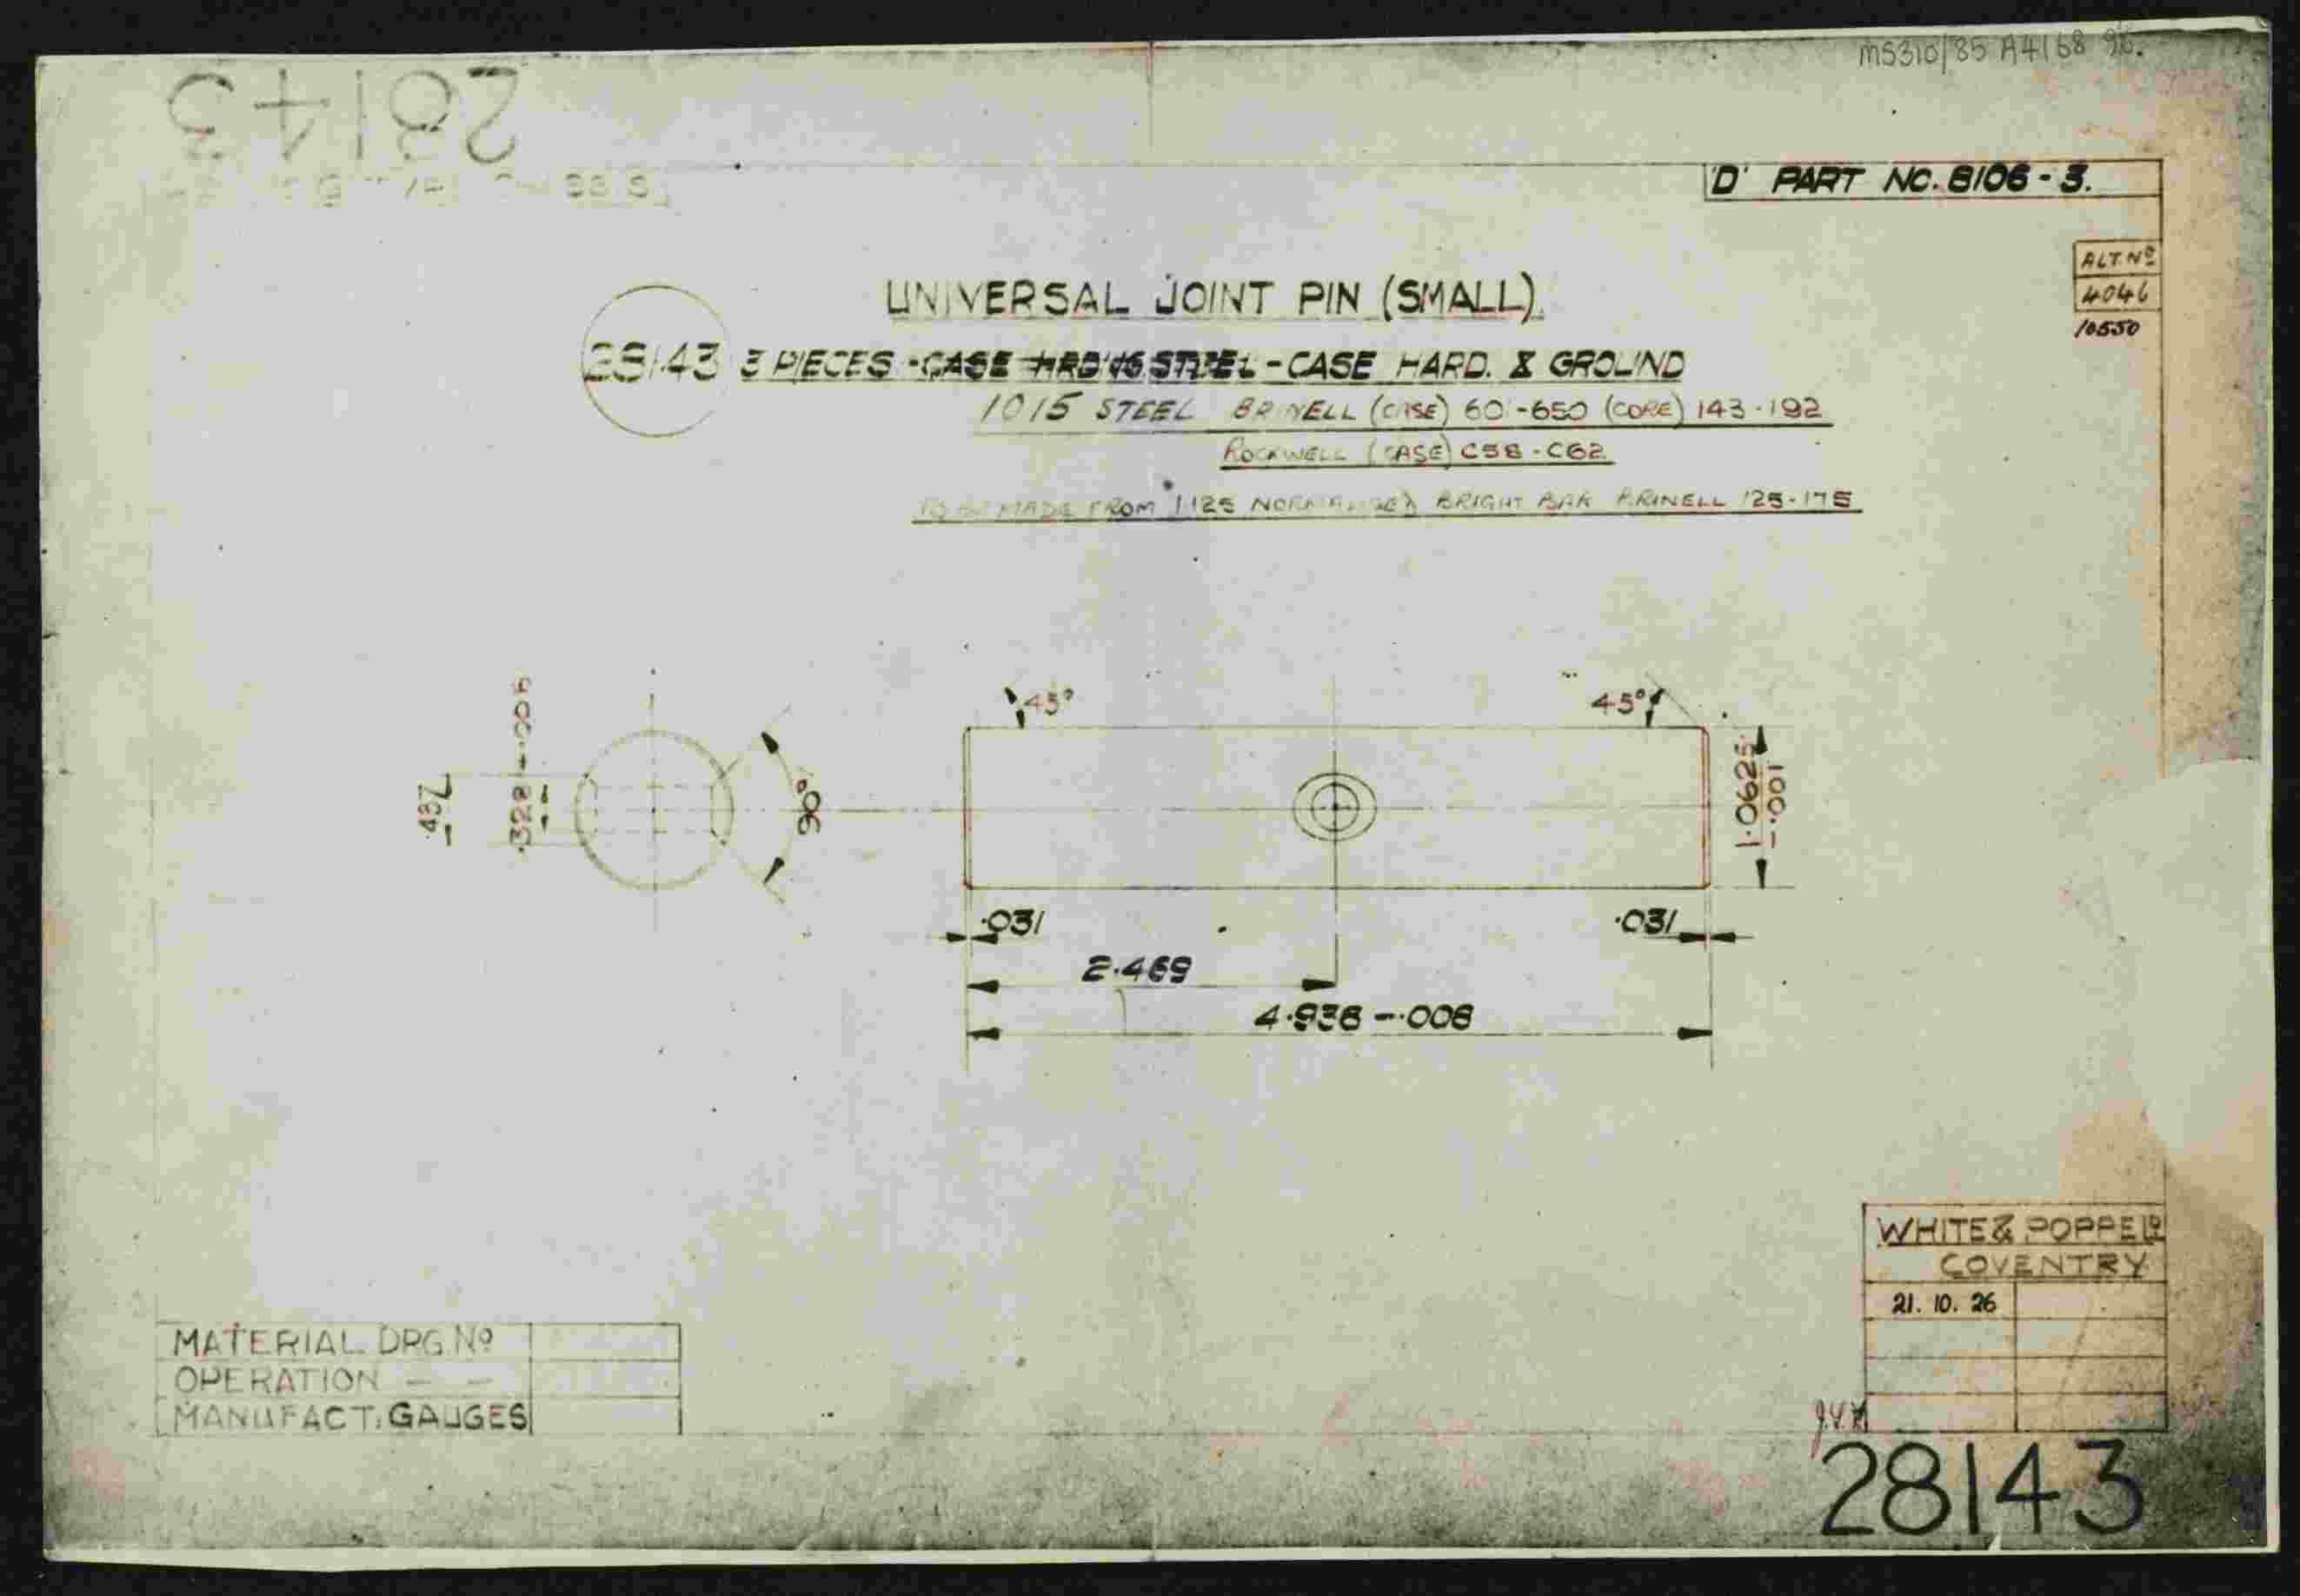 MS310/85 A4168
28143
'D' PART NO. 8106-3.
ALT. Nº
4046
10550
UNIVERSAL JOINT PIN (SMALL).
28143 3 PIECES - CASE HARD. & GROUND
1015 STEEL BRINELL (CASE) 601-650 (CORE) 143-192
ROCKWELL (CASE) C58-C62
TO BE MADE FROM 1.125 NORMALISED BRIGHT BAR BRINELL 125-175
45°
45°
.437
.322
90°
1.0625
-.001
.031
.031
2.469
4.938 -.006
WHITE & POPPE Lº
COVENTRY
21. 10. 26
MATERIAL DRG Nº
OPERATION — —
MANUFACT: GAUGES
28143